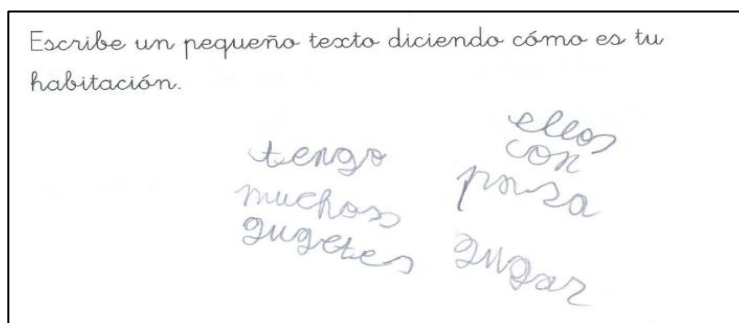 Escribe un pequeño texto diciendo cómo es tu
habitación.
tengo
muchos
gugetes
ellos
con
gugar